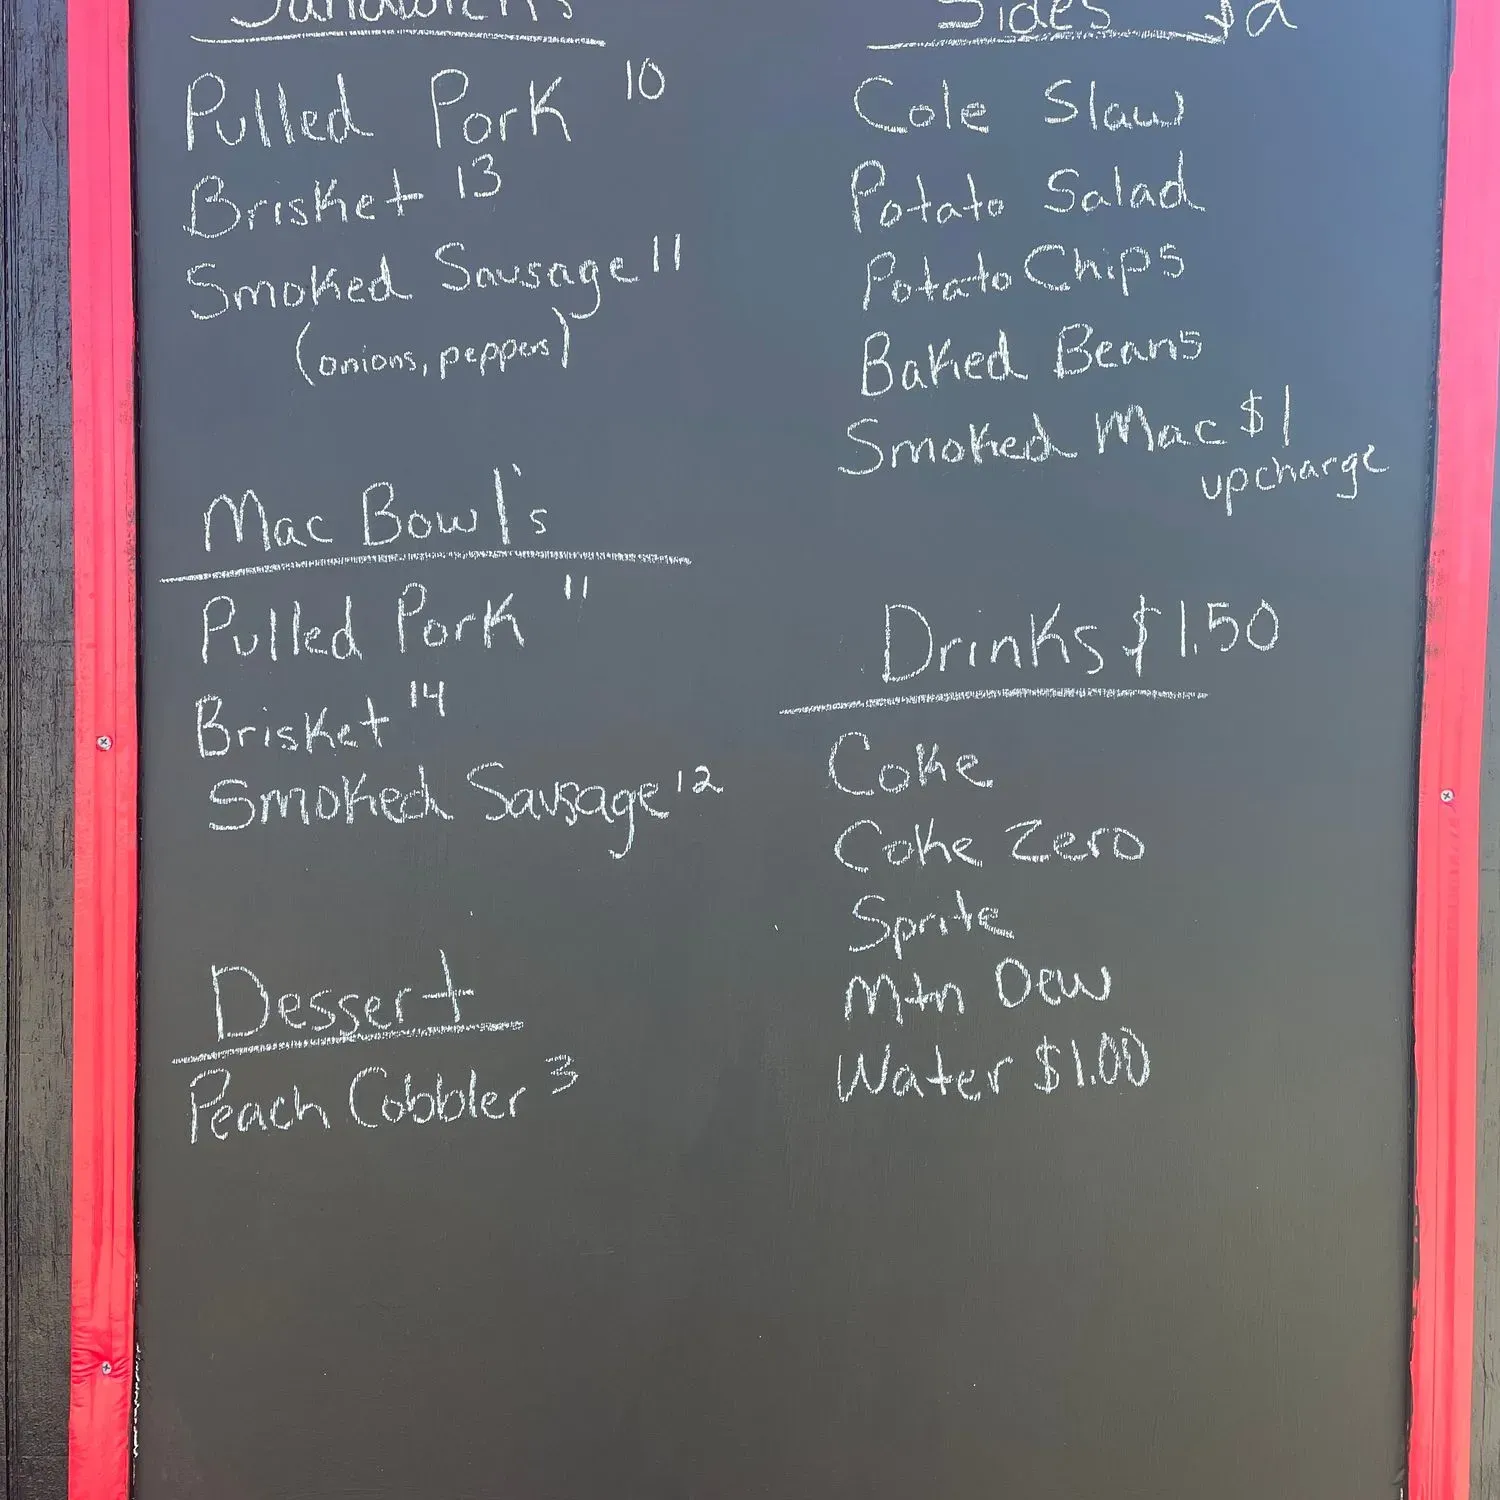 Sandwich's
Pulled Pork 10
Brisket 13
Smoked Sausage 11
(onions, peppers)
Mac Bowl's
Pulled Pork 11
Brisket 14
Smoked Sausage 12
Dessert
Peach Cobbler 3
Sides $2
Cole Slaw
Potato Salad
Potato Chips
Baked Beans
Smoked Mac $1
upcharge
Drinks $1.50
Coke
Coke Zero
Sprite
Mtn Dew
Water $1.00